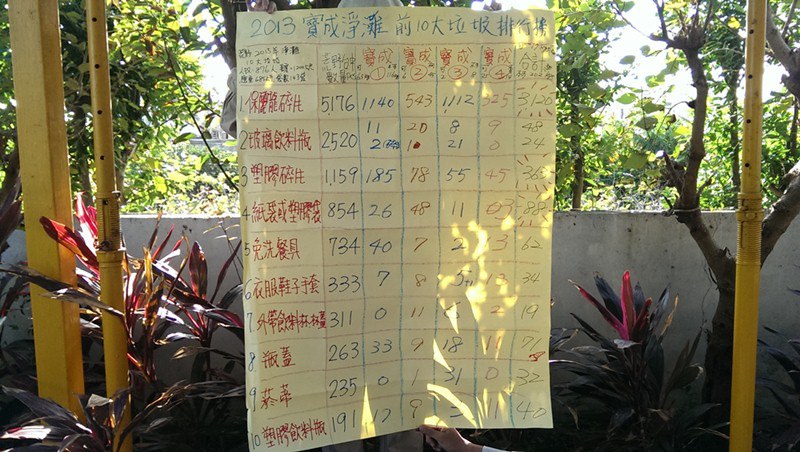 2013 寶成淨灘 前10大垃圾排行榜
荒野 2013年 淨灘
10大垃圾
寶成 寶成 寶成 寶成
① ② ③ ④
1. 保麗龍碎片 5,176 1140 543 1,112 325 3,120
2 玻璃飲料瓶 2520 11 20 8 9 48
2 21 0 24
3 塑膠碎片 1,159 185 78 55 45
4 紙袋或塑膠袋 854 26 48 11 88
5 免洗餐具 734 40 7 2 13 62
6. 衣服鞋子手套 333 7 8 34
7. 外帶飲料杯.杯蓋 311 0 11 2 19
8. 瓶蓋 263 33 9 18 11 71
9. 菸蒂 235 0 1 31 0 32
10. 塑膠飲料瓶 191 9 11 40